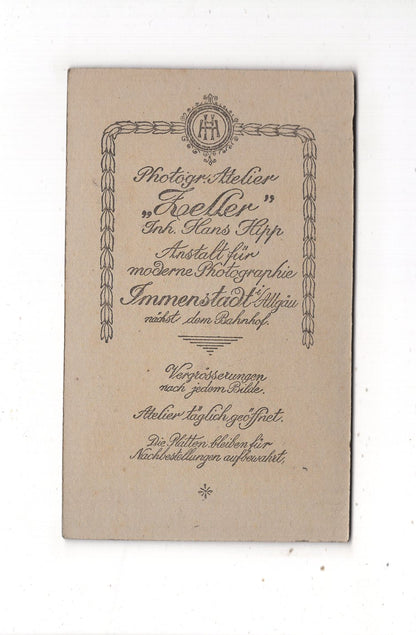 HH
Photogr. Atelier
„Zeller”
Inh. Hans Hipp
Anstalt für
moderne Photographie
Immenstadt i/Allgäu
nächst dem Bahnhof.
Vergrösserungen
nach jedem Bilde.
Atelier täglich geöffnet.
Die Platten bleiben für
Nachbestellungen aufbewahrt.